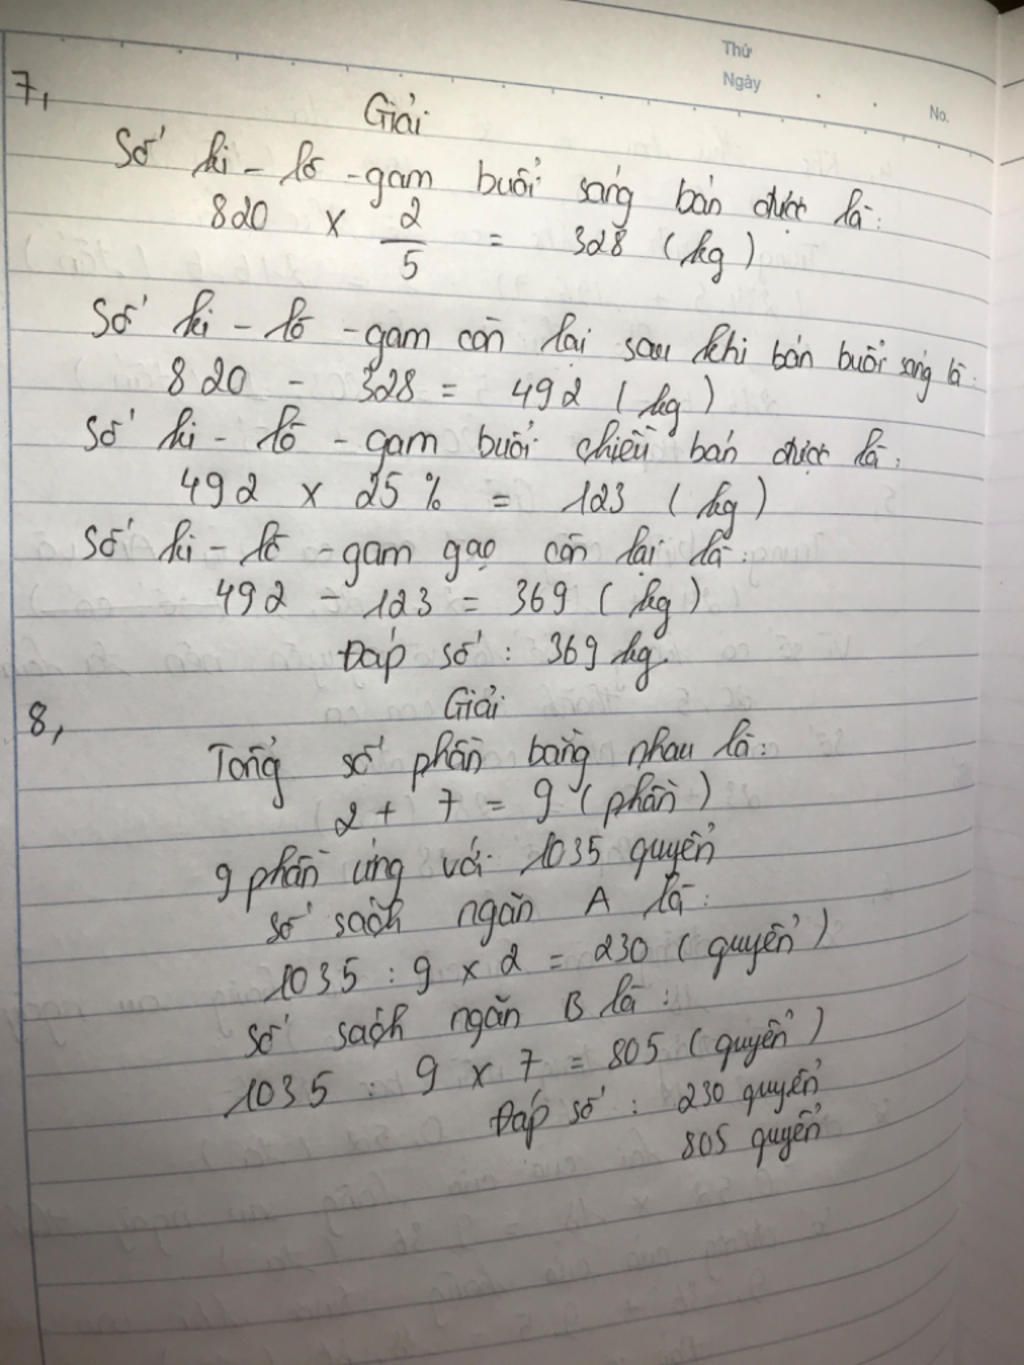 Thứ
Ngày
No.
7,
Giải
Số ki-lô-gam buổi sáng bán được là:
820 x 2/5 = 328 (kg)
Số ki-lô-gam còn lại sau khi bán buổi sáng là:
820 - 328 = 492 (kg)
Số ki-lô-gam buổi chiều bán được là:
492 x 25% = 123 (kg)
Số ki-lô-gam gạo còn lại là:
492 - 123 = 369 (kg)
Đáp số: 369 kg.
8,
Giải
Tổng số phần bằng nhau là:
2 + 7 = 9 (phần)
9 phần ứng với 1035 quyển
Số sách ngăn A là:
1035 : 9 x 2 = 230 (quyển)
Số sách ngăn B là:
1035 : 9 x 7 = 805 (quyển)
Đáp số: 230 quyển
805 quyển